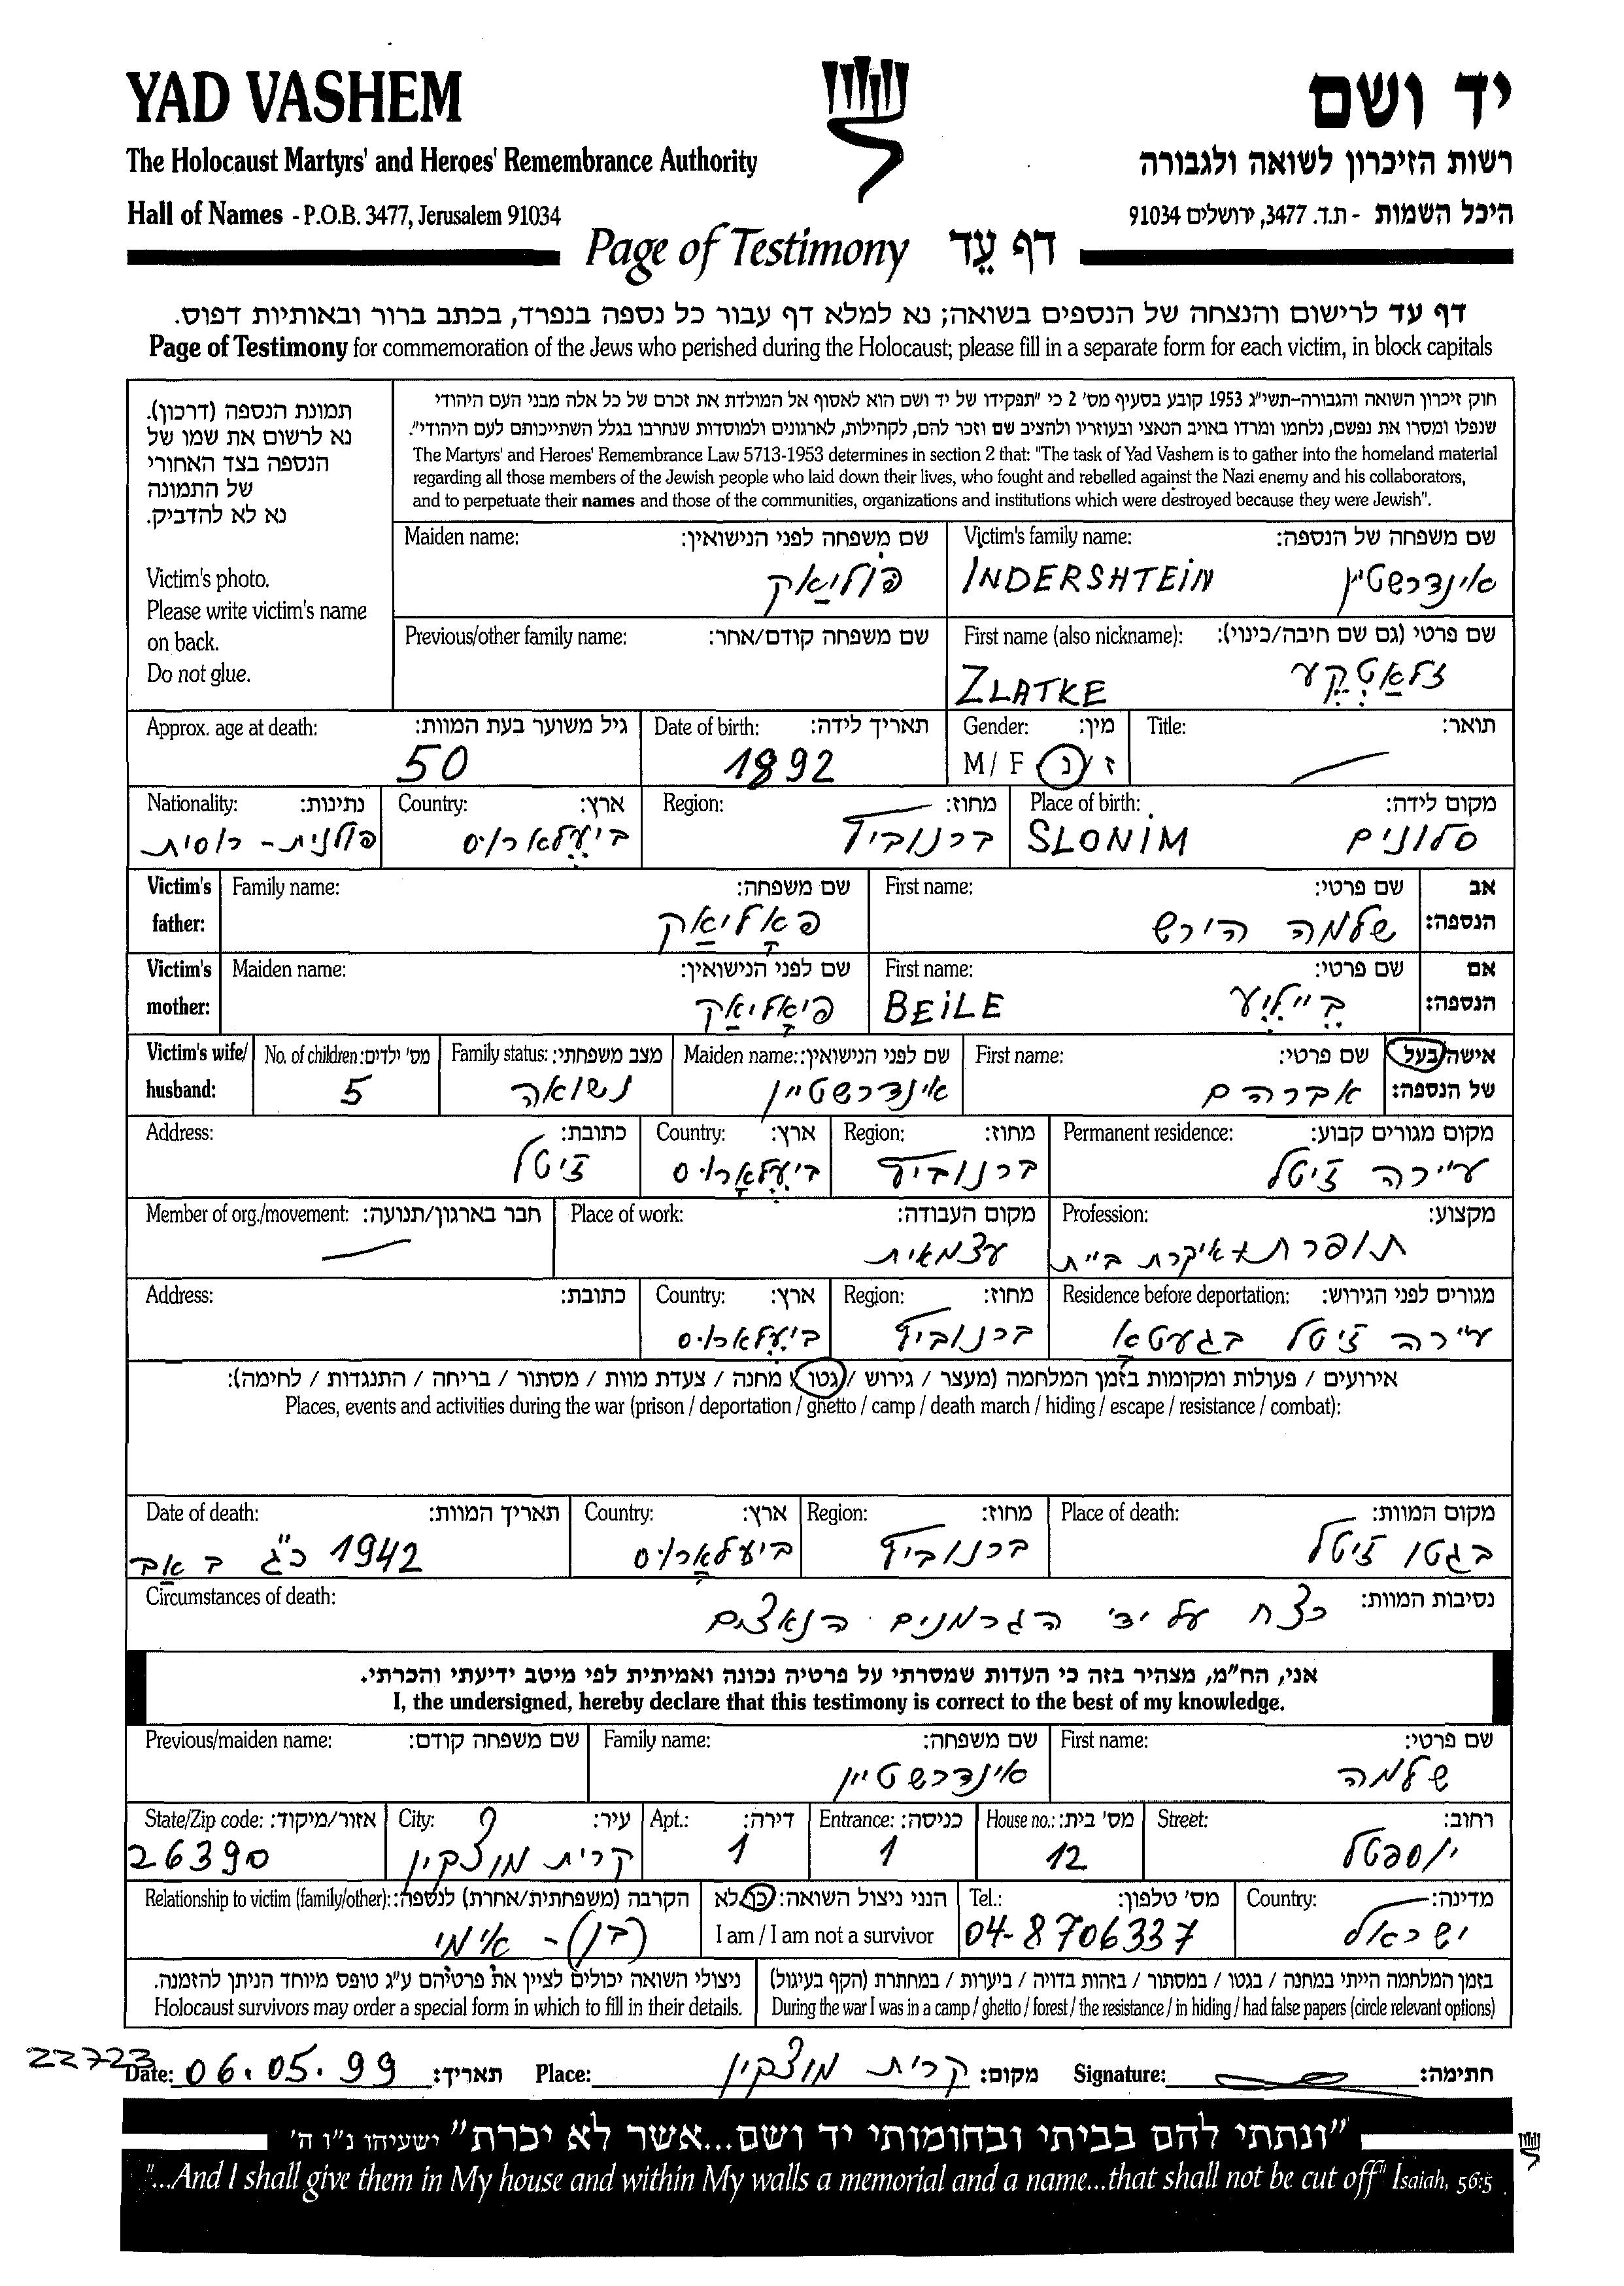 YAD VASHEM
יד ושם
The Holocaust Martyrs' and Heroes' Remembrance Authority
רשות הזיכרון לשואה ולגבורה
Hall of Names - P.O.B. 3477, Jerusalem 91034
היכל השמות - ת.ד. 3477, ירושלים 91034
Page of Testimony דף עֵד
דף עד לרישום והנצחה של הנספים בשואה; נא למלא דף עבור כל נספה בנפרד, בכתב ברור ובאותיות דפוס.
Page of Testimony for commemoration of the Jews who perished during the Holocaust; please fill in a separate form for each victim, in block capitals
תמונת הנספה (דרכון).
נא לרשום את שמו של
הנספה בצד האחורי
של התמונה
נא לא להדביק.
Victim's photo.
Please write victim's name
on back.
Do not glue.
חוק זיכרון השואה והגבורה-תשי"ג 1953 קובע בסעיף מס' 2 כי "תפקידו של יד ושם הוא לאסוף אל המולדת את זכרם של כל אלה מבני העם היהודי
שנפלו ומסרו את נפשם, נלחמו ומרדו באויב הנאצי ובעוזריו ולהציב שם וזכר להם, לקהילות, לארגונים ולמוסדות שנחרבו בגלל השתייכותם לעם היהודי".
The Martyrs' and Heroes' Remembrance Law 5713-1953 determines in section 2 that: "The task of Yad Vashem is to gather into the homeland material
regarding all those members of the Jewish people who laid down their lives, who fought and rebelled against the Nazi enemy and his collaborators,
and to perpetuate their names and those of the communities, organizations and institutions which were destroyed because they were Jewish".
Victim's family name: שם משפחה של הנספה:
INDERSHTEIN אינדרשטיין
Maiden name: שם משפחה לפני הנישואין:
פוליאַק
First name (also nickname): שם פרטי (גם שם חיבה/כינוי):
ZLATKE זלאַטקע
Previous/other family name: שם משפחה קודם/אחר:
Title: תואר:
Gender: מין:
M / F ז / נ
Date of birth: תאריך לידה:
1892
Approx. age at death: גיל משוער בעת המוות:
50
Place of birth: מקום לידה:
SLONIM סלונים
Region: מחוז:
ברנוביץ'
Country: ארץ:
ביעלארוס
Nationality: נתינות:
פולנית - רוסית
Victim's father: אב הנספה:
First name: שם פרטי:
שלמה הירש
Family name: שם משפחה:
פאָליאַק
Victim's mother: אם הנספה:
First name: שם פרטי:
BEILE
Maiden name: שם לפני הנישואין:
Victim's wife/ husband: אישה/בעל של הנספה:
First name: שם פרטי:
אברהם
Maiden name: שם לפני הנישואין:
אינדרשטיין
Family status: מצב משפחתי:
נשואה
No. of children: מס' ילדים:
5
Permanent residence: מקום מגורים קבוע:
עיירה ז'יטל
Region: מחוז:
ברנוביץ'
Country: ארץ:
ביעלאָרוס
Address: כתובת:
ז'יטל
Profession: מקצוע:
תופרת + עיקרת בית
Place of work: מקום העבודה:
עצמאית
Member of org./movement: חבר בארגון/תנועה:
Residence before deportation: מגורים לפני הגירוש:
עיירה ז'יטל בגעטאָ
Region: מחוז:
ברנוביץ'
Country: ארץ:
ביעלארוס
Address: כתובת:
אירועים / פעולות ומקומות בזמן המלחמה (מעצר / גירוש / גטו / מחנה / צעדת מוות / מסתור / בריחה / התנגדות / לחימה):
Places, events and activities during the war (prison / deportation / ghetto / camp / death march / hiding / escape / resistance / combat):
Place of death: מקום המוות:
בגטו ז'יטל
Region: מחוז:
ברנוביץ'
Country: ארץ:
ביעלאַרוס
Date of death: תאריך המוות:
1942 כ"ג ב אב
Circumstances of death: נסיבות המוות:
רצח על ידי הגרמנים הנאצים
אני, הח"מ, מצהיר בזה כי העדות שמסרתי על פרטיה נכונה ואמיתית לפי מיטב ידיעתי והכרתי.
I, the undersigned, hereby declare that this testimony is correct to the best of my knowledge.
First name: שם פרטי:
שלמה
Family name: שם משפחה:
אינדרשטיין
Previous/maiden name: שם משפחה קודם:
Street: רחוב:
יוספטל
House no.: מס' בית:
12
Entrance: כניסה:
1
Apt.: דירה:
1
City: עיר:
קרית מוצקין
State/Zip code: אזור/מיקוד:
26390
Country: מדינה:
ישראל
Tel.: מס' טלפון:
04-8706337
הנני ניצול השואה: כן/לא
I am / I am not a survivor
Relationship to victim (family/other): הקרבה (משפחתית/אחרת) לנספה:
(בן) - אימי
בזמן המלחמה הייתי במחנה / בגטו / במסתור / בזהות בדויה / ביערות / במחתרת (הקף בעיגול)
During the war I was in a camp / ghetto / forest / the resistance / in hiding / had false papers (circle relevant options)
ניצולי השואה יכולים לציין את פרטיהם ע"ג טופס מיוחד הניתן להזמנה.
Holocaust survivors may order a special form in which to fill in their details.
22723
Date: 06.05.99 תאריך: Place: קרית מוצקין מקום: Signature: חתימה:
"ונתתי להם בביתי ובחומותי יד ושם...אשר לא יכרת" ישעיהו נ"ו ה'
"...And I shall give them in My house and within My walls a memorial and a name...that shall not be cut off" Isaiah, 56:5